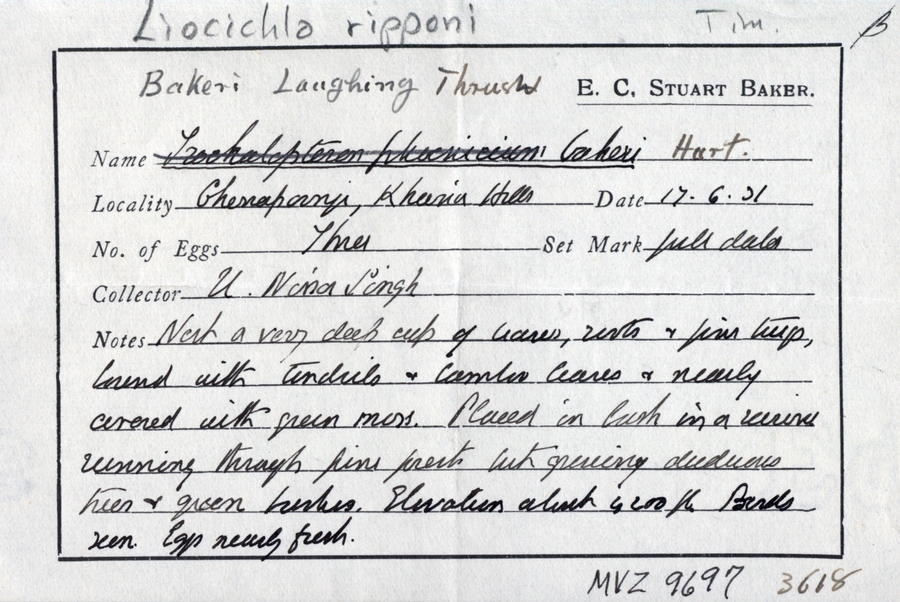 Liocichla ripponi Tim. B
Bakeri Laughing Thrush E. C. STUART BAKER.
Name Trochalopteron phoenicium bakeri Hart.
Locality Cherrapunji, Khasia Hills Date 17. 6. 31
No. of Eggs Three Set Mark full data
Collector U. Singh
Notes Nest a very deep cup of leaves, roots & twigs,
bound with tendrils & bamboo leaves & nearly
covered with green moss. Placed in bush in a ravine
running through pine forest but growing deciduous
trees & green bushes. Elevation about 4200 ft. Birds
seen. Eggs nearly fresh.
MVZ 9697 3618